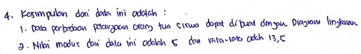 4. Kesimpulan dari data ini adalah :
1. Data perbedaan pekerjaan orang tua siswa dapat di buat dengan Diagram lingkaran.
2. Nilai modus dari data ini adalah 5 dan rata-rata adlh 13,5